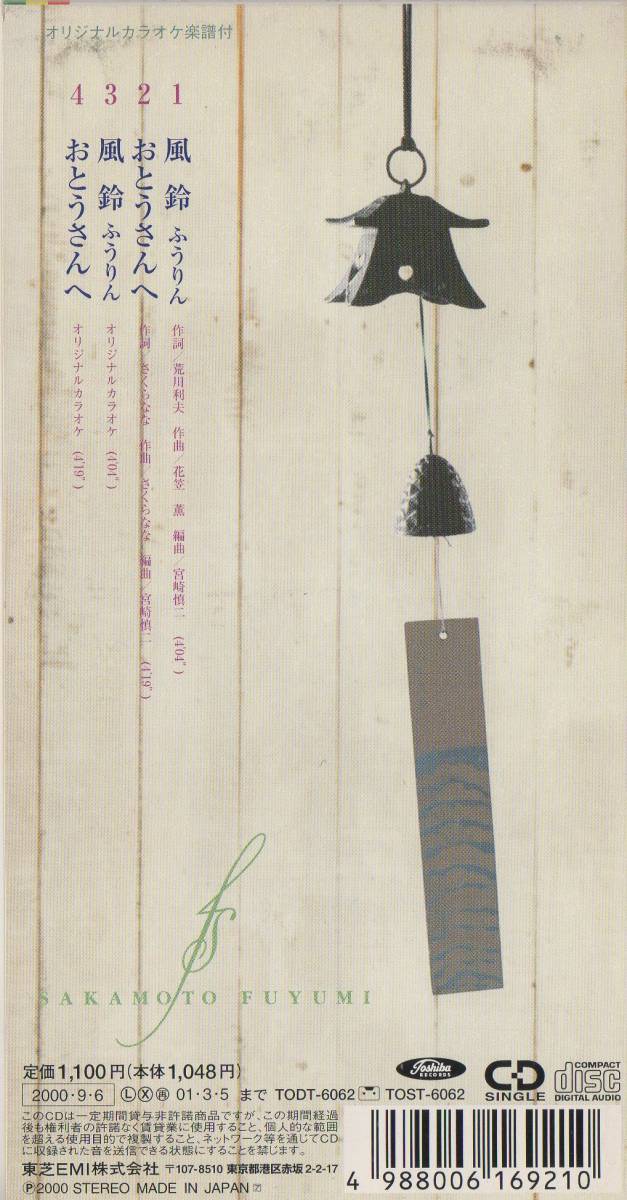 オリジナルカラオケ楽譜付
1 風鈴 ふうりん 作詞/荒川利夫 作曲/花笠 薫 編曲/宮崎慎二 (4'04")
2 おとうさんへ 作詞/さくらなな 作曲/さくらなな 編曲/宮崎慎二 (4'19")
3 風鈴 ふうりん オリジナルカラオケ (4'04")
4 おとうさんへ オリジナルカラオケ (4'19")
fs
SAKAMOTO FUYUMI
定価1,100円(本体1,048円)
Toshiba RECORDS
CD SINGLE
COMPACT disc DIGITAL AUDIO
2000・9・6 Ⓛ Ⓧ ㊞ 01・3・5 まで TODT-6062 TOST-6062
このCDは一定期間貸与非許諾商品ですが、この期間経過
後も権利者の許諾なく賃貸業に使用すること、個人的な範囲
を超える使用目的で複製すること、ネットワーク等を通じてCD
に収録された音を送信できる状態にすることを禁じます。
東芝EMI株式会社 〒107-8510 東京都港区赤坂2-2-17
Ⓟ2000 STEREO MADE IN JAPAN
4 988006 169210